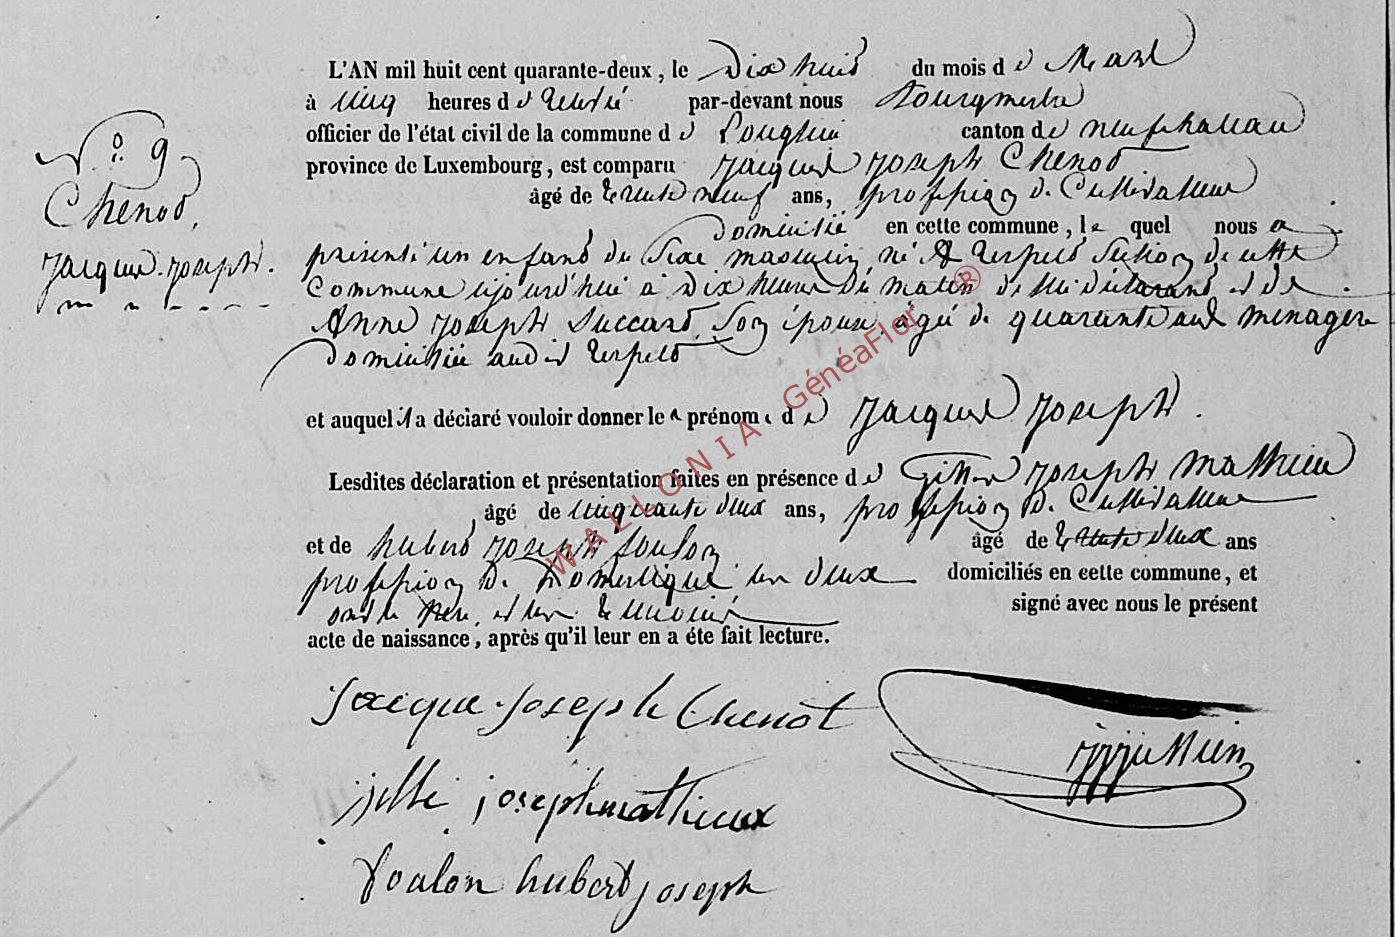 N° 9
Chenot,
Jacque Joseph.
L'AN mil huit cent quarante-deux, le Dix huit du mois de Mars
à cinq heures de par-devant nous Bourgmestre
officier de l'état civil de la commune de Longlier canton de neufchateau
province de Luxembourg, est comparu Jacque Joseph Chenot
âgé de trente neuf ans, profession de Cultivateur
domicilié en cette commune, le quel nous a
présenté un enfant du Sexe masculin né à Respelt Section de cette
Commune aujourd'hui à Dix heures du matin de lui déclarant et de
Anne Joseph Succard Son épouse âgée de quarante ans ménagère
domiciliée audit Respelt
et auquel il a déclaré vouloir donner le prénom de Jacque Joseph.
Lesdites déclaration et présentation faites en présence de Joseph Mathieu
âgé de cinquante deux ans, profession de Cultivateur
et de hubert Joseph âgé de trente deux ans
profession de Domestique deux domiciliés en cette commune, et
ont le Père et les témoins signé avec nous le présent
acte de naissance, après qu'il leur en a éte fait lecture.
Jacque Joseph Chenot
joseph mathieux
hubert joseph
WALLONIA GénéaFlor ®